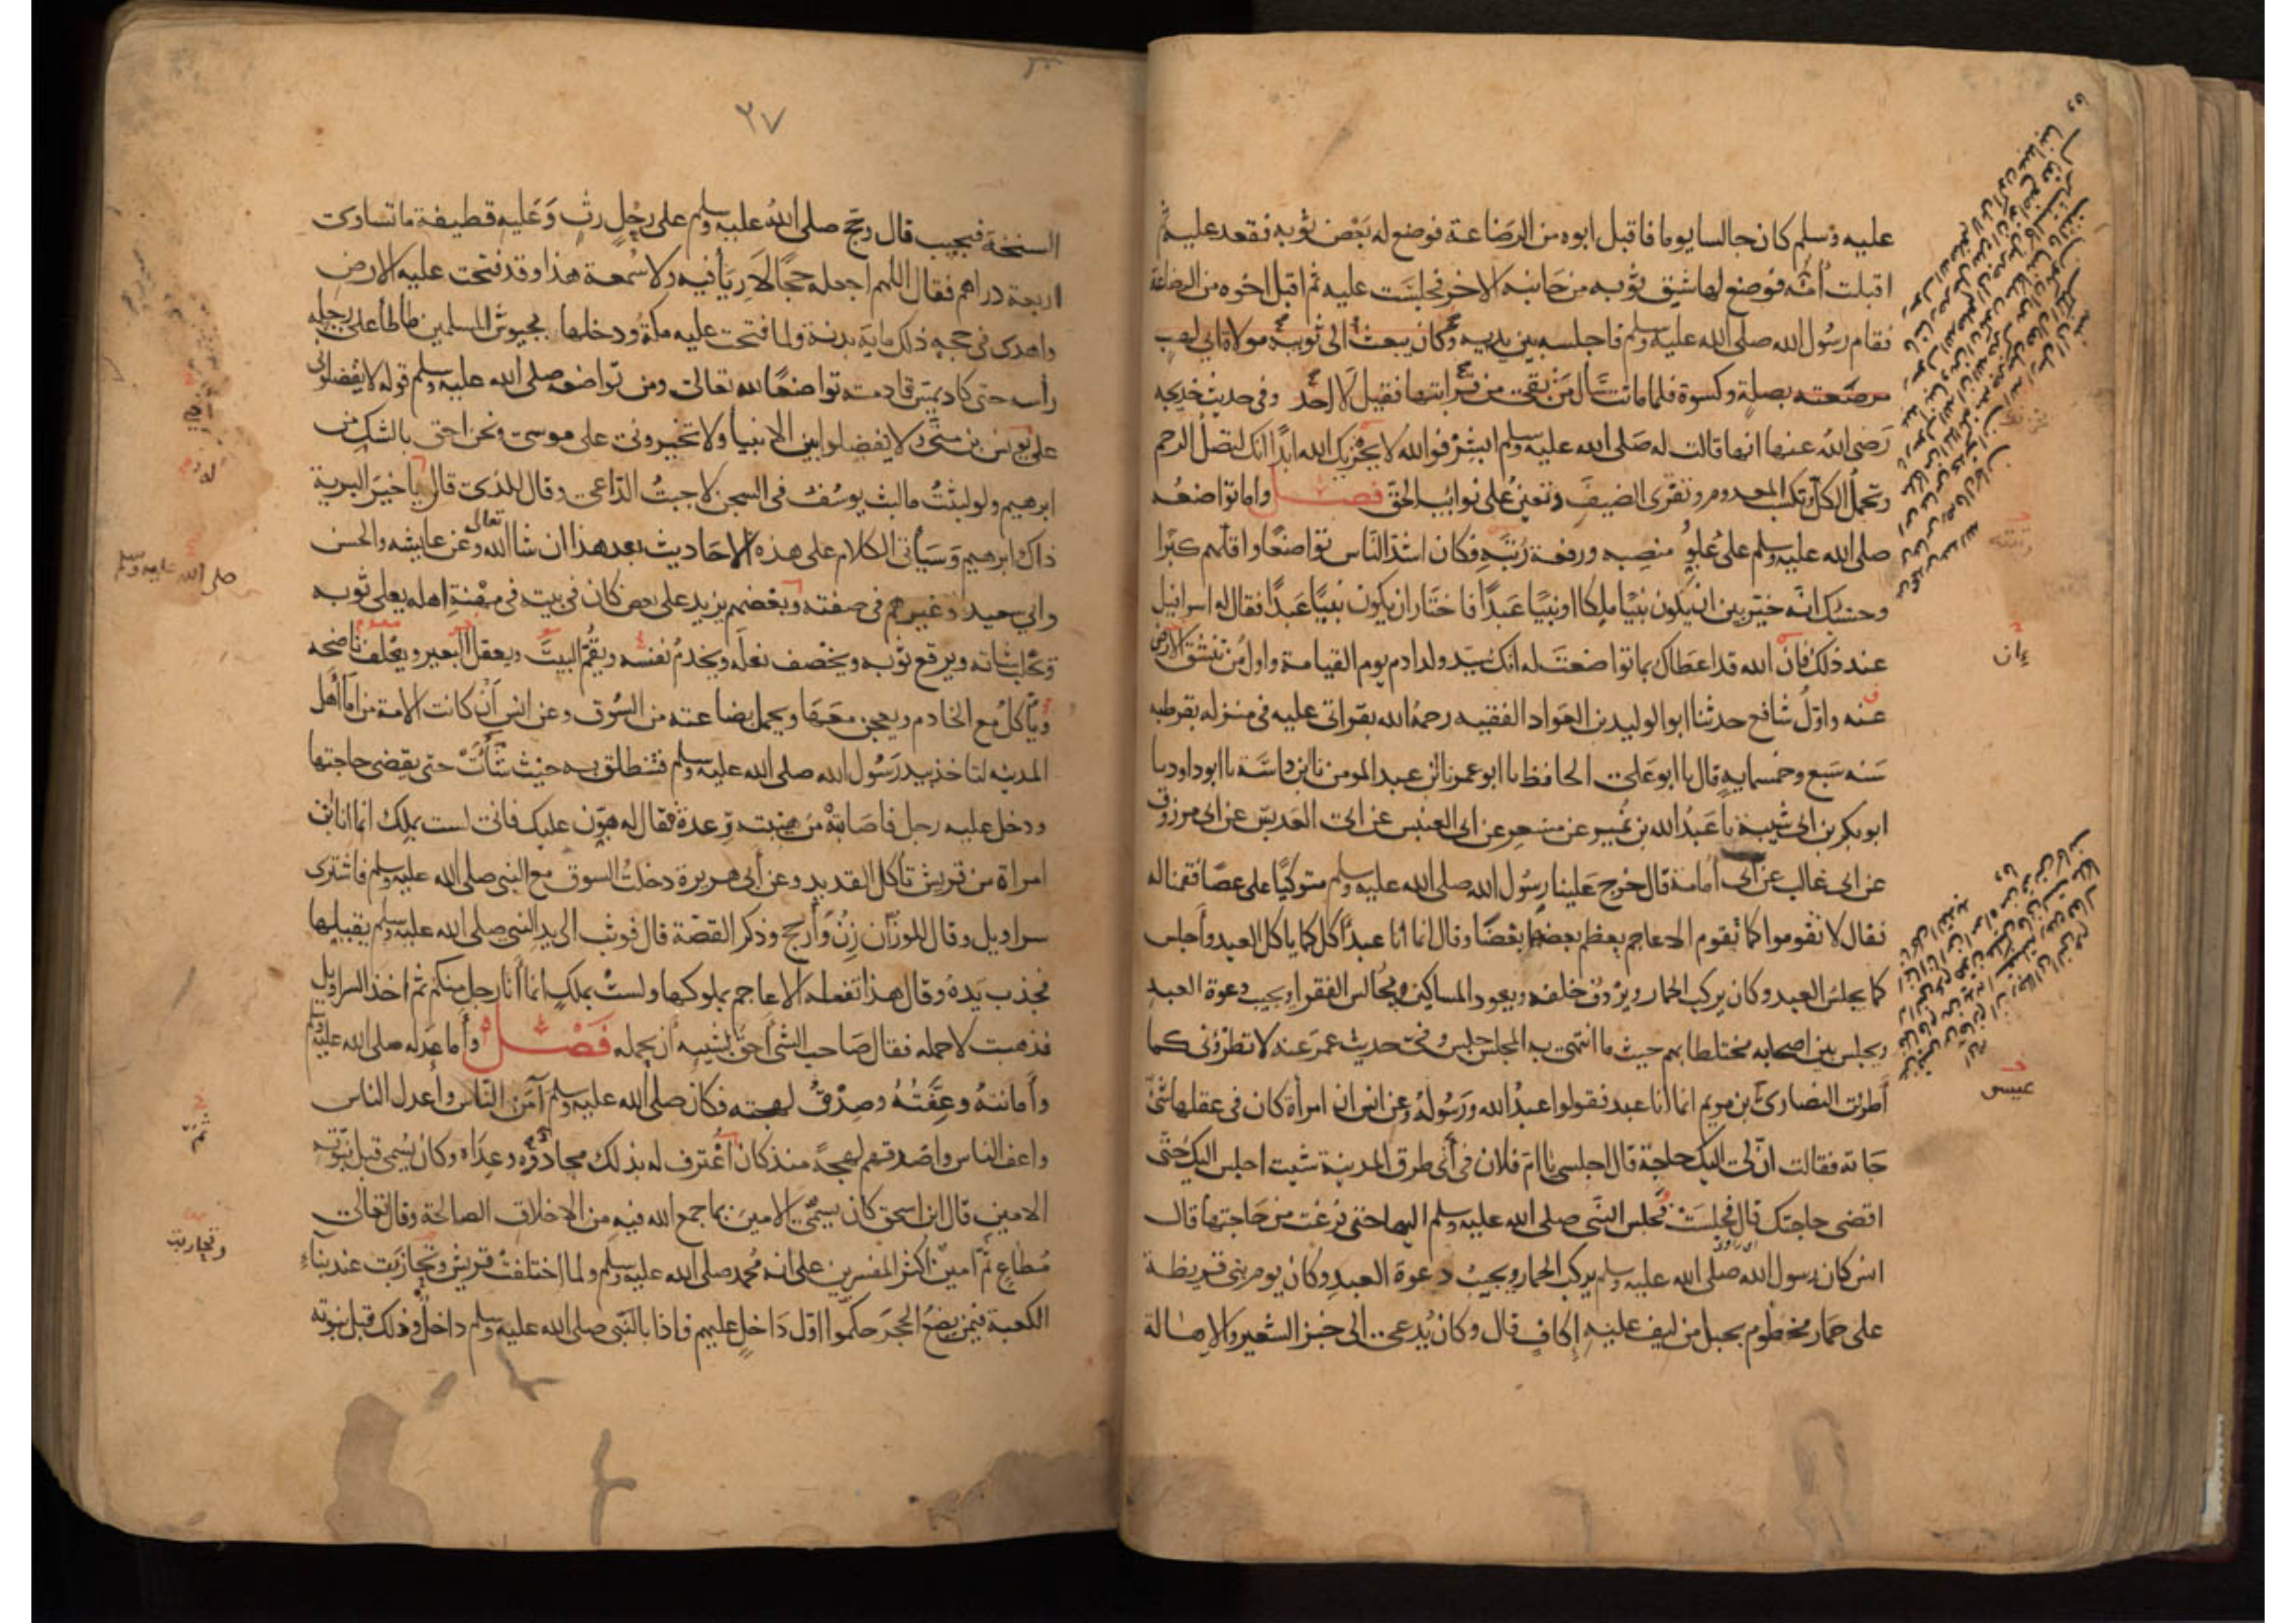 عليه وسلم كان جالسا يوما فاقبل ابوه من الرضاعة فوضع له بعض ثوبه فقعد عليه ثم
اقبلت أمّه فوضع لها شق ثوبه من جانبه الاخر فجلست عليه ثم اقبل اخوه من الرضاعة
فقام رسول الله صلى الله عليه وسلم فاجلسه بين يديه وكان يبعث الى ثويبة مولاة ابي لهب
مرضعته بصلة وكسوة فلما ماتت سأل من بقى من قرابتها فقيل لا احد وفي حديث خديجه
رضى الله عنها انها قالت له صلى الله عليه وسلم ابشر فوالله لا يحزنك الله ابدا انك لتصل الرحم
وتحمل الكل وتكسب المعدوم وتقرى الضيف وتعين على نوائب الحق فصل واما تواضعه
صلى الله عليه وسلم على علو منصبه ورفعة رتبته فكان اشد الناس تواضعا واقلهم كبرا
وحسبك انه خير بين ان يكون نبيا ملكا او نبيا عبدا فاختار ان يكون نبيا عبدا فقال له اسرافيل
عند ذلك فان الله قد اعطاك بما تواضعت له انك سيد ولد ادم يوم القيامة واول من تنشق الارض
عنه واول شافع حدثنا ابو الوليد بن العواد الفقيه رحمه الله بقراتى عليه في منزله بقرطبه
سنه سبع وخمسمايه قال نا ابو على الحافظ نا ابو عمر نا ابن عبد المومن نا ابن داسة نا ابو داود نا
ابو بكر بن ابى شيبة نا عبد الله بن نمير عن مسعر عن ابى العنبس عن ابى العدبس عن ابى مرزوق
عن ابى غالب عن ابى أمامة قال خرج علينا رسول الله صلى الله عليه وسلم متوكيا على عصا فقمنا له
فقال لا تقوموا كما تقوم الاعاجم يعظم بعضهم بعضا وقال انما انا عبد آكل كما ياكل العبد وأجلس
كما يجلس العبد وكان يركب الحمار ويردف خلفه ويعود المساكين ويجالس الفقرا ويجيب دعوة العبد
ويجلس بين اصحابه مختلطا بهم حيث ما انتهى به المجلس جلس وفي حديث عمر عنه لا تطروني كما
أطرت النصارى بن مريم انما أنا عبد فقولوا عبد الله ورسوله وعن انس ان امرأة كان في عقلها شئ
جاته فقالت ان لى اليك حاجة قال اجلسى يا ام فلان في أى طرق المدينة شيت اجلس اليك حتى
اقضى حاجتك قال فجلست فجلس النبى صلى الله عليه وسلم اليها حتى فرغت من حاجتها قال
انس كان رسول الله صلى الله عليه وسلم يركب الحمار ويجيب دعوة العبد وكان يوم بنى قريظة
على حمار مخطوم بحبل من ليف عليه إكاف قال وكان يدعى الى خبز الشعير والاهالة
ءان
عيسى
٢٧
السنخة فيجيب قال وحج صلى الله عليه وسلم على رحل رث وعليه قطيفة ما تساوى
اربعة دراهم فقال اللهم اجعله حجا لا رياء فيه ولا سمعة هذا وقد فتحت عليه الارض
واهدى في حجه ذلك ماية بدنة ولما فتحت عليه مكة ودخلها بجيوش المسلمين طاطأ على رحله
رأسه حتى كاد يمس قادمته تواضعا لله تعالى ومن تواضعه صلى الله عليه وسلم قوله لا تفضلونى
على يونس بن متى ولا تفضلوا بين الانبيا ولا تخيرونى على موسى ونحن احق بالشك من
ابرهيم ولو لبثت ما لبث يوسف في السجن لاجبت الداعى وقال للذى قال يا خير البرية
ذاك ابرهيم وسيأتى الكلام على هذه الاحاديث بعد هذا ان شا الله تعالى وعن عايشه والحسن
وابي سعيد وغيرهم في صفته وبعضهم يزيد على بعض كان في بيته في مهنة اهله يفلى ثوبه
ويحلب شاته ويرقع ثوبه ويخصف نعله ويخدم نفسه ويقم البيت ويعقل البعير ويعلف ناضحه
ويأكل مع الخادم ويعجن معها ويحمل بضاعته من السوق وعن انس أن كانت الامة من إما أهل
المدينه لتاخذ بيد رسول الله صلى الله عليه وسلم فتنطلق به حيث شأت حتى يقضى حاجتها
ودخل عليه رجل فاصابته من هيبته رعدة فقال له هون عليك فانى لست بملك انما انا ابن
امراة من قريش تأكل القديد وعن أبي هريرة دخلت السوق مع النبي صلى الله عليه وسلم فاشترى
سراويل وقال للوزان زن وأرجح وذكر القصة قال فوثب الى يد النبي صلى الله عليه وسلم يقبلها
فجذب يده وقال هذا تفعله الاعاجم بملوكها ولست بملك انما أنا رجل منكم ثم اخذ السراويل
فذهبت لاحمله فقال صاحب الشى أحق بشيه أن يحمله فصل وأما عدله صلى الله عليه وسلم
وأمانته وعفته وصدق لهجته فكان صلى الله عليه وسلم آمن الناس وأعدل الناس
واعف الناس واصدقهم لهجة منذ كان أعترف له بذلك محادوه وعداه وكان يسمى قبل نبوته
الامين قال ابن اسحق كان يسمى الامين بما جمع الله فيه من الاخلاق الصالحة وقال تعالى
مطاع ثم أمين اكثر المفسرين على انه محمد صلى الله عليه وسلم ولما اختلفت قريش وتحازبت عند بناء
الكعبة فيمن يضع الحجر حكموا اول داخل عليهم فاذا بالنبى صلى الله عليه وسلم داخل وذلك قبل نبوته
صلى الله عليه وسلم